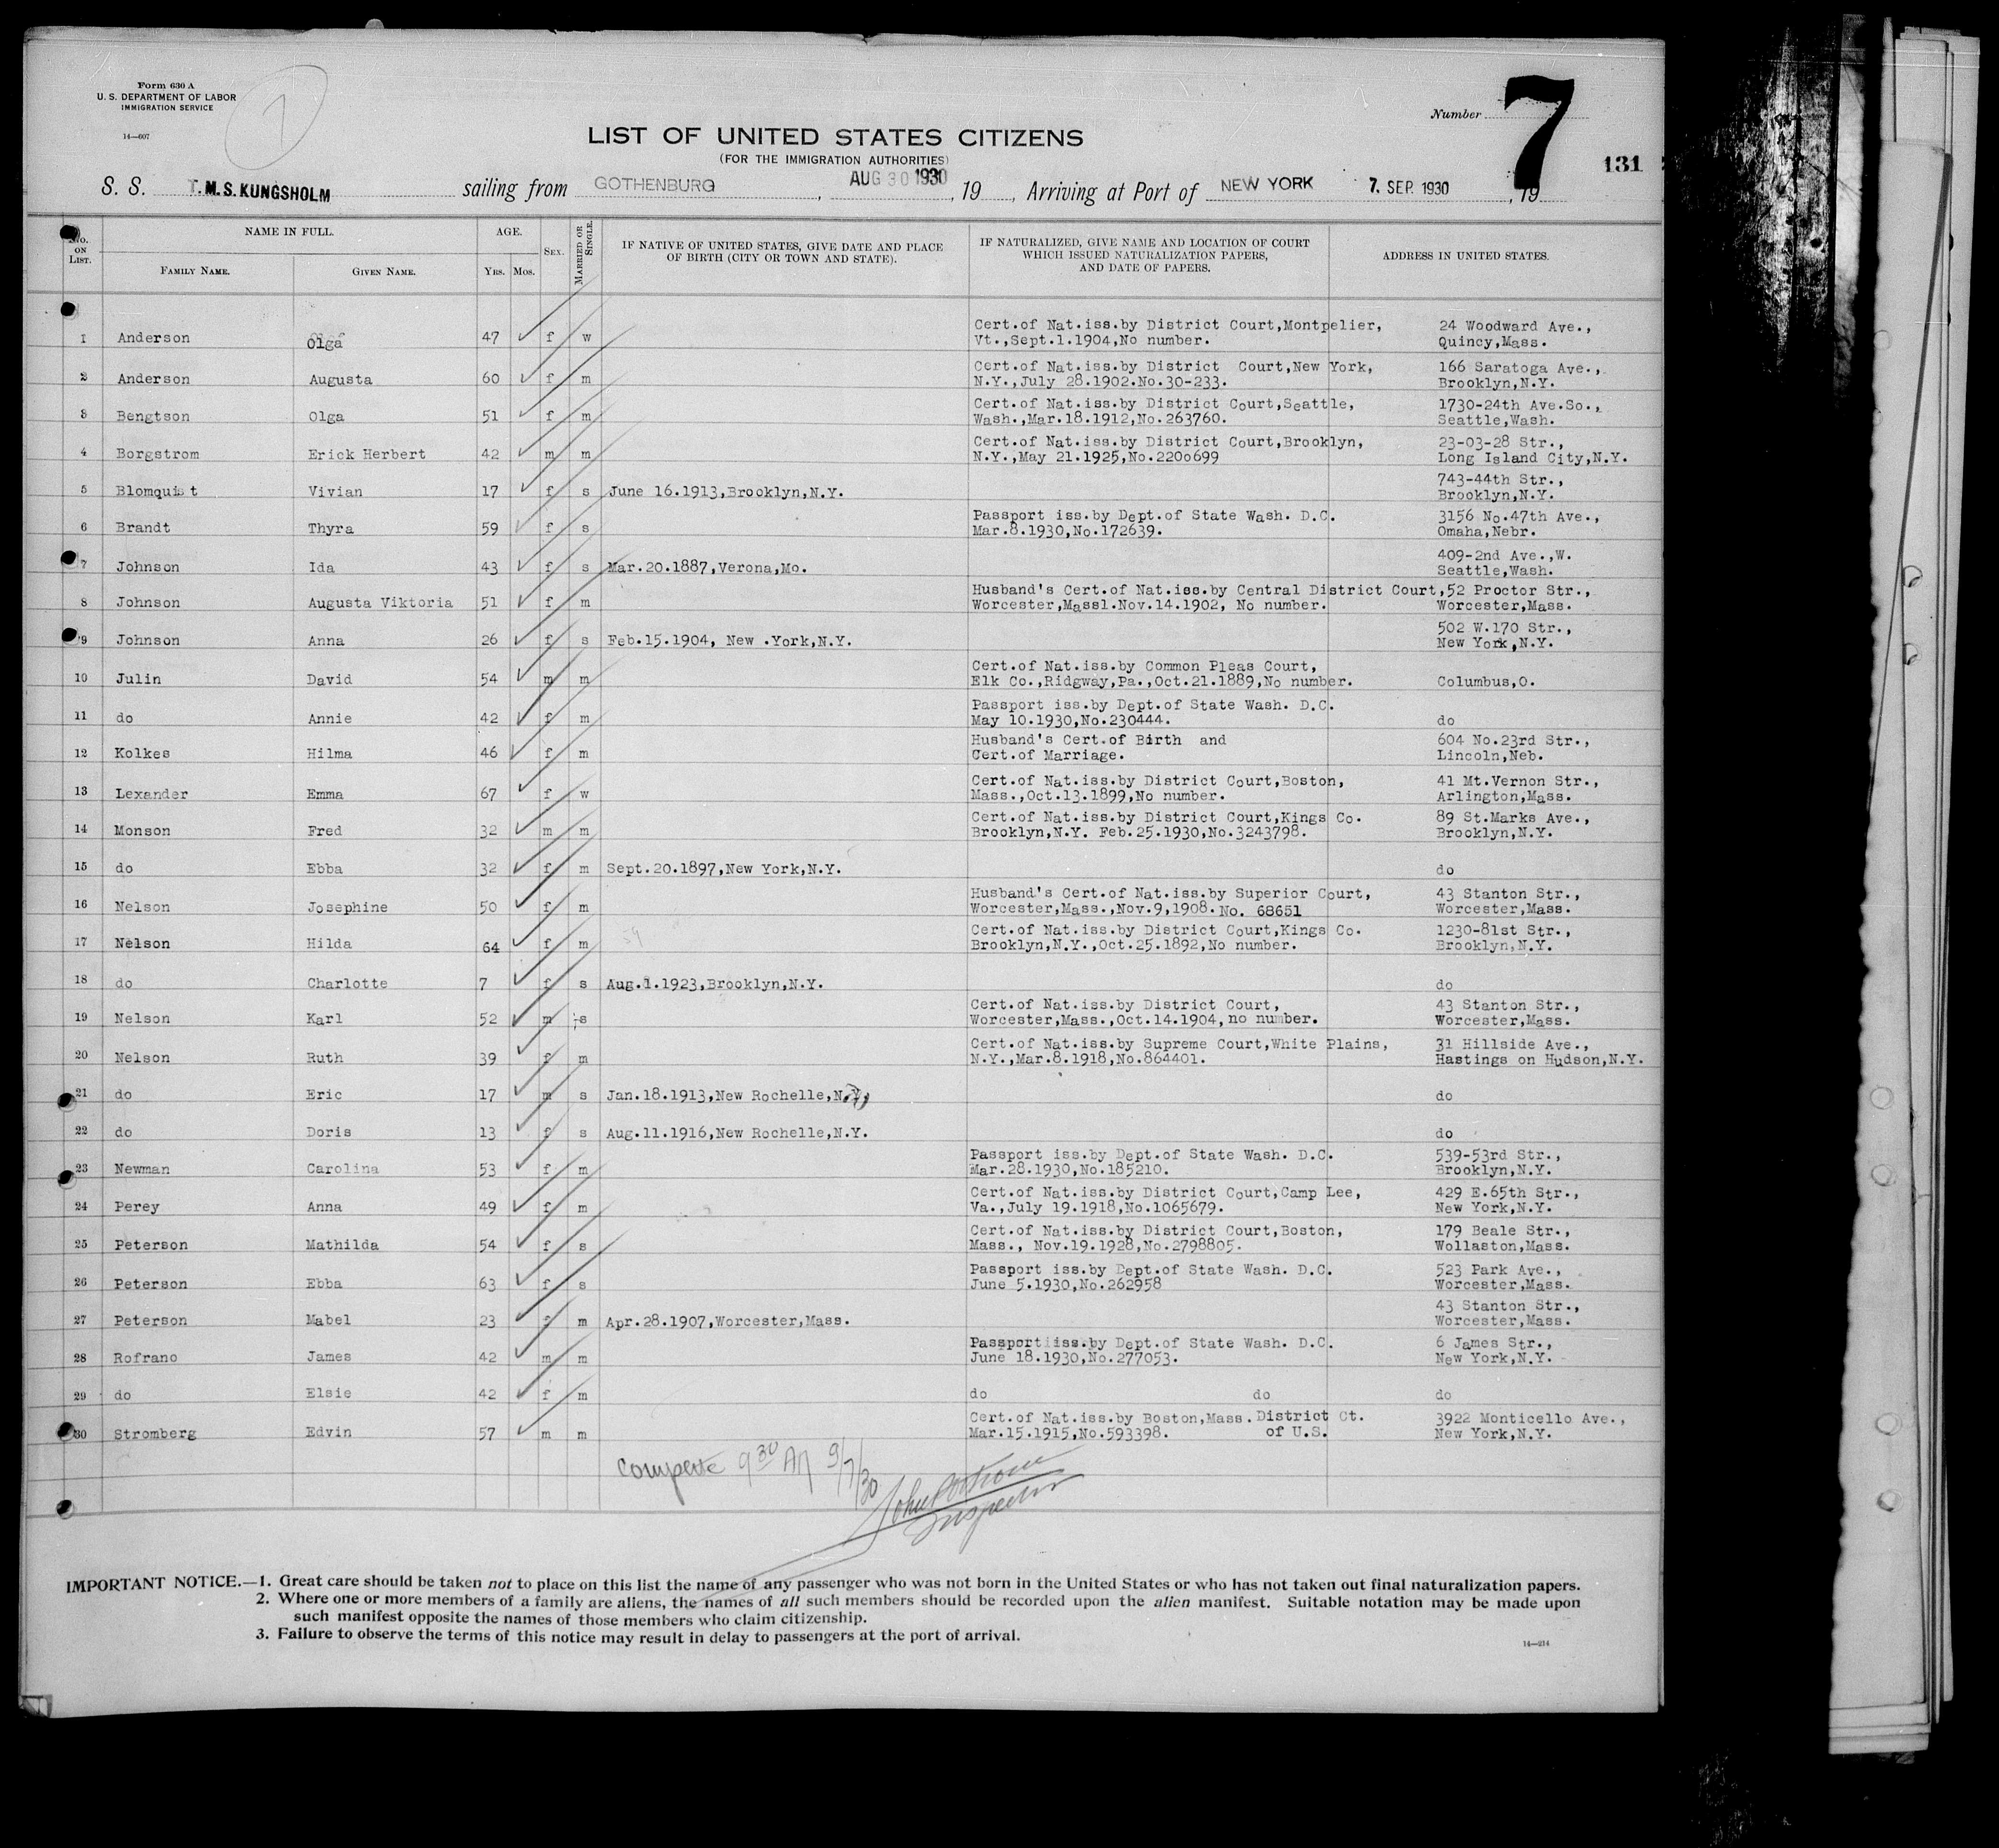 Form 630 A
U. S. DEPARTMENT OF LABOR
IMMIGRATION SERVICE
14—607
7
Number 7
131
LIST OF UNITED STATES CITIZENS
(FOR THE IMMIGRATION AUTHORITIES)
S. S. T.M.S.KUNGSHOLM sailing from GOTHENBURG, AUG 30 1930, 19 , Arriving at Port of NEW YORK 7. SEP. 1930, 19
No. ON LIST. NAME IN FULL. AGE. SEX. MARRIED OR SINGLE. IF NATIVE OF UNITED STATES, GIVE DATE AND PLACE OF BIRTH (CITY OR TOWN AND STATE). IF NATURALIZED, GIVE NAME AND LOCATION OF COURT WHICH ISSUED NATURALIZATION PAPERS, AND DATE OF PAPERS. ADDRESS IN UNITED STATES.
FAMILY NAME. GIVEN NAME. YRS. MOS.
Cert.of Nat.iss.by District Court,Montpelier, 24 Woodward Ave.,
1 Anderson Olga 47 f w Vt.,Sept.1.1904,No number. Quincy,Mass.
Cert.of Nat.iss.by District Court,New York, 166 Saratoga Ave.,
2 Anderson Augusta 60 f m N.Y.,July 28.1902.No.30-233. Brooklyn,N.Y.
Cert.of Nat.iss.by District Court,Seattle, 1730-24th Ave.So.,
3 Bengtson Olga 51 f m Wash.,Mar.18.1912,No.263760. Seattle,Wash.
Cert.of Nat.iss.by District Court,Brooklyn, 23-03-28 Str.,
4 Borgstrom Erick Herbert 42 m m N.Y.,May 21.1925,No.2200699 Long Island City,N.Y.
743-44th Str.,
5 Blomquist Vivian 17 f s June 16.1913,Brooklyn,N.Y. Brooklyn,N.Y.
Passport iss.by Dept.of State Wash. D.C. 3156 No.47th Ave.,
6 Brandt Thyra 59 f s Mar.8.1930,No.172639. Omaha,Nebr.
409-2nd Ave.,W.
7 Johnson Ida 43 f s Mar.20.1887,Verona,Mo. Seattle,Wash.
Husband's Cert.of Nat.iss.by Central District Court, 52 Proctor Str.,
8 Johnson Augusta Viktoria 51 f m Worcester,Massl.Nov.14.1902, No number. Worcester,Mass.
502 W.170 Str.,
9 Johnson Anna 26 f s Feb.15.1904, New .York,N.Y. New York,N.Y.
Cert.of Nat.iss.by Common Pleas Court,
10 Julin David 54 m m Elk Co.,Ridgway,Pa.,Oct.21.1889,No number. Columbus,O.
Passport iss.by Dept.of State Wash. D.C.
11 do Annie 42 f m May 10.1930,No.230444. do
Husband's Cert.of Birth and 604 No.23rd Str.,
12 Kolkes Hilma 46 f m Cert.of Marriage. Lincoln,Neb.
Cert.of Nat.iss.by District Court,Boston, 41 Mt.Vernon Str.,
13 Lexander Emma 67 f w Mass.,Oct.13.1899,No number. Arlington,Mass.
Cert.of Nat.iss.by District Court,Kings Co. 89 St.Marks Ave.,
14 Monson Fred 32 m m Brooklyn,N.Y. Feb.25.1930,No.3243798. Brooklyn,N.Y.
15 do Ebba 32 f m Sept.20.1897,New York,N.Y. do
Husband's Cert.of Nat.iss.by Superior Court, 43 Stanton Str.,
16 Nelson Josephine 50 f m Worcester,Mass.,Nov.9,1908. No. 68651 Worcester,Mass.
Cert.of Nat.iss.by District Court,Kings Co. 1230-81st Str.,
17 Nelson Hilda 64 f m Brooklyn,N.Y.,Oct.25.1892,No number. Brooklyn,N.Y.
18 do Charlotte 7 f s Aug.1.1923,Brooklyn,N.Y. do
Cert.of Nat.iss.by District Court, 43 Stanton Str.,
19 Nelson Karl 52 m s Worcester,Mass.,Oct.14.1904, no number. Worcester,Mass.
Cert.of Nat.iss.by Supreme Court,White Plains, 31 Hillside Ave.,
20 Nelson Ruth 39 f m N.Y.,Mar.8.1918,No.864401. Hastings on Hudson,N.Y.
21 do Eric 17 m s Jan.18.1913,New Rochelle,N.Y. do
22 do Doris 13 f s Aug.11.1916,New Rochelle,N.Y. do
Passport iss.by Dept.of State Wash. D.C. 539-53rd Str.,
23 Newman Carolina 53 f m Mar.28.1930,No.185210. Brooklyn,N.Y.
Cert.of Nat.iss.by District Court,Camp Lee, 429 E.65th Str.,
24 Perey Anna 49 f m Va.,July 19.1918,No.1065679. New York,N.Y.
Cert.of Nat.iss.by District Court,Boston, 179 Beale Str.,
25 Peterson Mathilda 54 f s Mass., Nov.19.1928,No.2798805. Wollaston,Mass.
Passport iss.by Dept.of State Wash. D.C. 523 Park Ave.,
26 Peterson Ebba 63 f s June 5.1930,No.262958 Worcester,Mass.
43 Stanton Str.,
27 Peterson Mabel 23 f m Apr.28.1907,Worcester,Mass. Worcester,Mass.
Passport iss.by Dept.of State Wash. D.C. 6 James Str.,
28 Rofrano James 42 m m June 18.1930,No.277053. New York,N.Y.
29 do Elsie 42 f m do do do
Cert.of Nat.iss.by Boston,Mass. District Ct. 3922 Monticello Ave.,
30 Stromberg Edvin 57 m m Mar.15.1915,No.593398. of U.S. New York,N.Y.
Complete 9 30 AM 9/7/30
John
Inspector
IMPORTANT NOTICE.—1. Great care should be taken not to place on this list the name of any passenger who was not born in the United States or who has not taken out final naturalization papers.
2. Where one or more members of a family are aliens, the names of all such members should be recorded upon the alien manifest. Suitable notation may be made upon
such manifest opposite the names of those members who claim citizenship.
3. Failure to observe the terms of this notice may result in delay to passengers at the port of arrival.
14—214